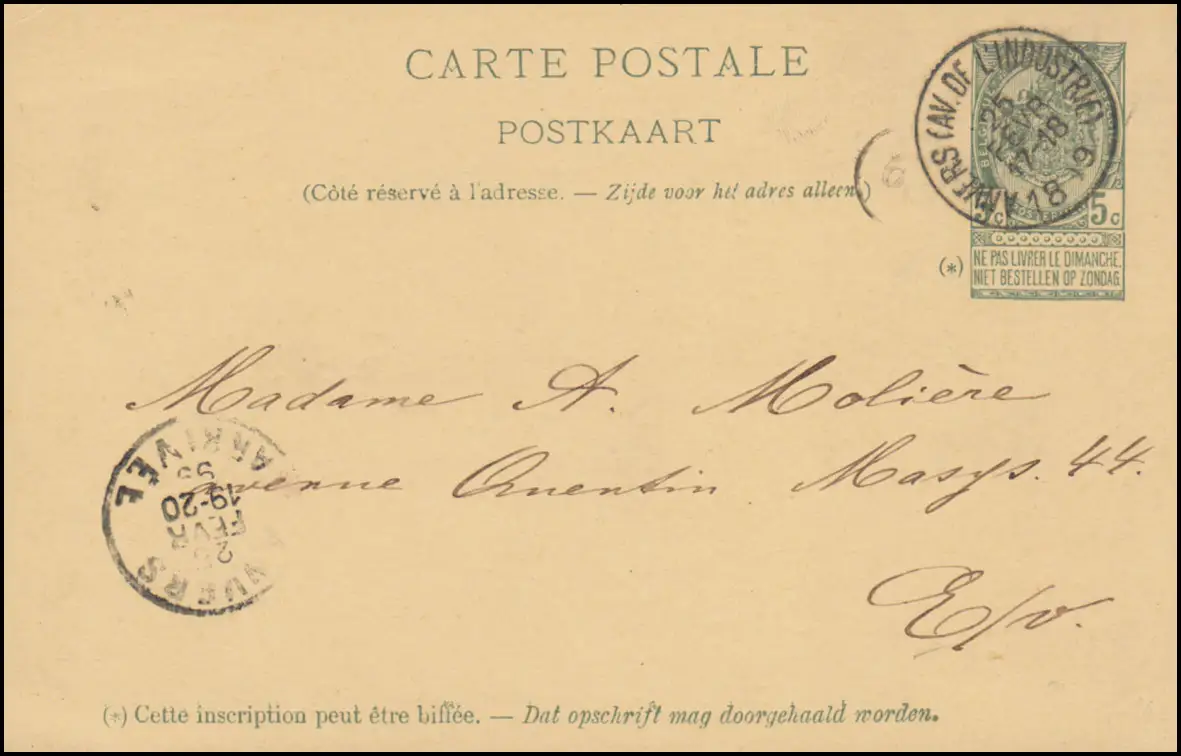 CARTE POSTALE
POSTKAART
(Côté réservé à l'adresse. — Zijde voor het adres alleen.)
ANVERS (AV. DE L'INDUSTRIE)
25
FEVR
17-18
1899
5c 5c
(*)
NE PAS LIVRER LE DIMANCHE.
NIET BESTELLEN OP ZONDAG.
Madame A. Molière
Avenue Quentin Masys. 44.
E/v.
ARRIVÉE
19-20
FEVR
(*) Cette inscription peut être biffée. — Dat opschrift mag doorgehaald worden.